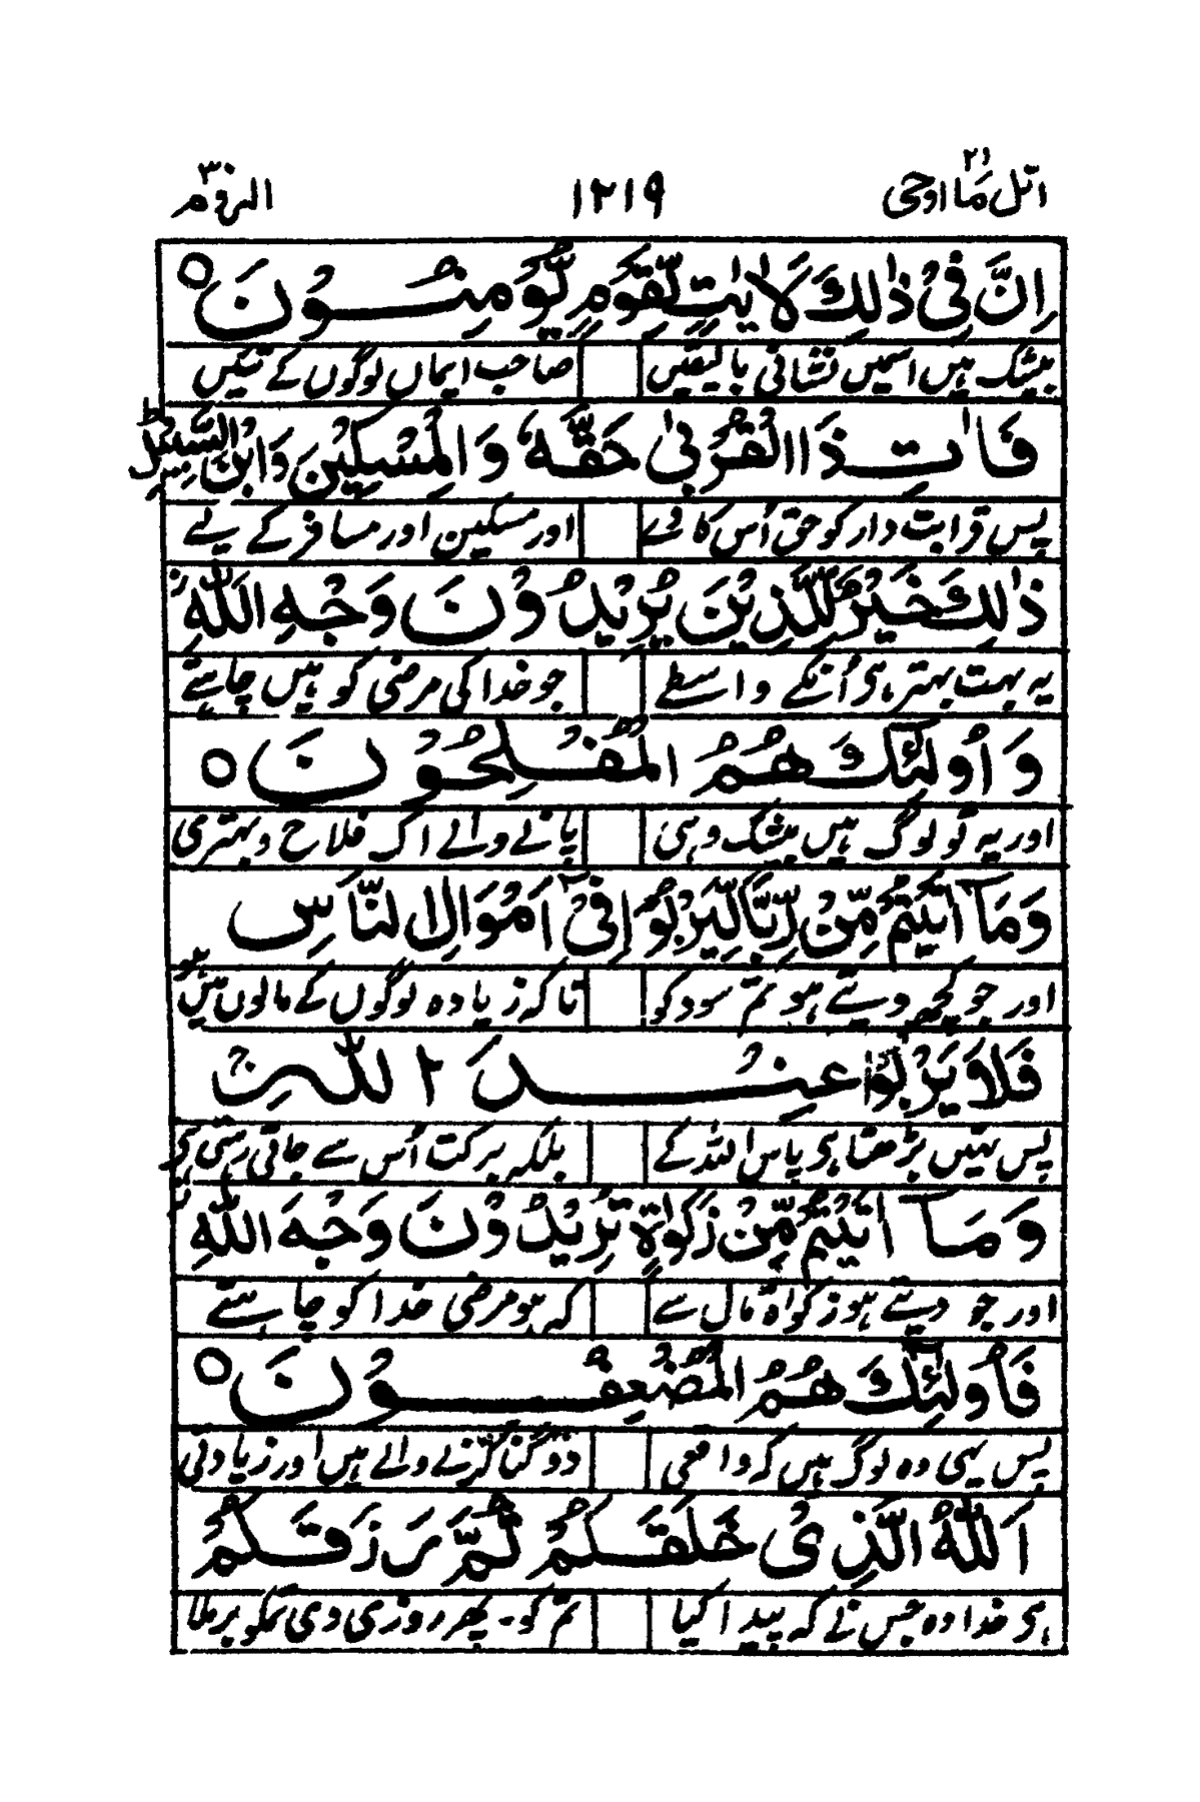 اتل ما اوحی ۲۱ ۱۲۱۹ الروم ۳۰
اِنَّ فِیْ ذٰلِكَ لَاٰیٰتٍ لِّقَوْمٍ یُّؤْمِنُوْنَ ۝
بیشک ہیں اسمیں نشانی بالیقیں صاحب ایماں لوگوں کے تئیں
فَاٰتِ ذَا الْقُرْبٰی حَقَّهٗ وَ الْمِسْكِیْنَ وَ ابْنَ السَّبِیْلِؕ
پس قرابت دار کو حق اُس کا دے اور مسکین اور مسافر کے لیے
ذٰلِكَ خَیْرٌ لِّلَّذِیْنَ یُرِیْدُوْنَ وَجْهَ اللّٰهِؗ
یہ بہت بہتر ہی اُنکے واسطے جو خدا کی مرضی کو ہیں چاہتے
وَ اُولٰٓىِٕكَ هُمُ الْمُفْلِحُوْنَ ۝
اور یہ تو لوگ ہیں بیشک وہی پانے والے اک فلاح و بہتری
وَ مَاۤ اٰتَیْتُمْ مِّنْ رِّبًا لِّیَرْبُوَاۡ فِیْۤ اَمْوَالِ النَّاسِ
اور جو کچھ دیتے ہو تم سود کو تا کہ زیادہ لوگوں کے مالوں میں ہو
فَلَا یَرْبُوْا عِنْدَ اللّٰهِۚ
پس نہیں بڑھتا ہی پاس اللہ کے بلکہ برکت اُس سے جاتی رہتی ہی
وَ مَاۤ اٰتَیْتُمْ مِّنْ زَكٰوةٍ تُرِیْدُوْنَ وَجْهَ اللّٰهِ
اور جو دیتے ہو زکوٰۃ مال سے کہ ہو مرضی خدا کو چاہتے
فَاُولٰٓىِٕكَ هُمُ الْمُضْعِفُوْنَ ۝
پس یہی وہ لوگ ہیں کہ واقعی دو گنا کرنے والے ہیں اور زیادتی
اَللّٰهُ الَّذِیْ خَلَقَكُمْ ثُمَّ رَزَقَكُمْ
ہی خدا وہ جس نے کہ پیدا کیا تم کو۔ پھر روزی دی تمکو بر ملا